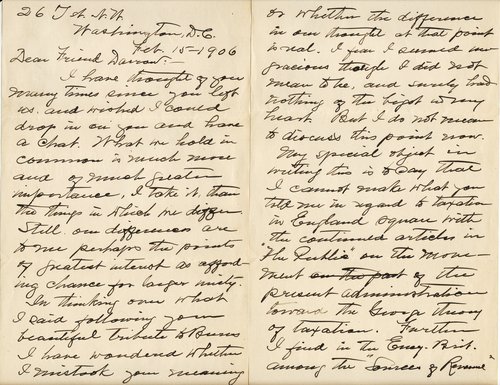 26 T st. N.W.
Washington, D.C.
Feb. 15-1906
Dear Friend Darrow:-
I have thought of you
many times since you left
us, and wished I could
drop in on you and have
a chat. What we hold in
common is much more
and of much greater
importance, I take it, than
the things in which we differ.
Still our differences are
to me perhaps the points
of greatest interest as afford
ing chance for larger unity.
In thinking over what
I said following your
beautiful tribute to Burns
I have wondered whether
I mistook your meaning
or whether the difference
in our thought at that point
is real. I fear I seemed un
gracious though I did not
mean to be, and surely had
nothing of the bigot in my
heart. But I do not mean
to discuss this point now.
My special object in
writing this is to say that
I cannot make what you
told me in regard to taxation
in England square with
the continued articles in
"The Public" on the move-
ment on the part of the
present administration
toward the George theory
of taxation. Further
I find in the Ency. Brit.
among the "Sources of Revenue"